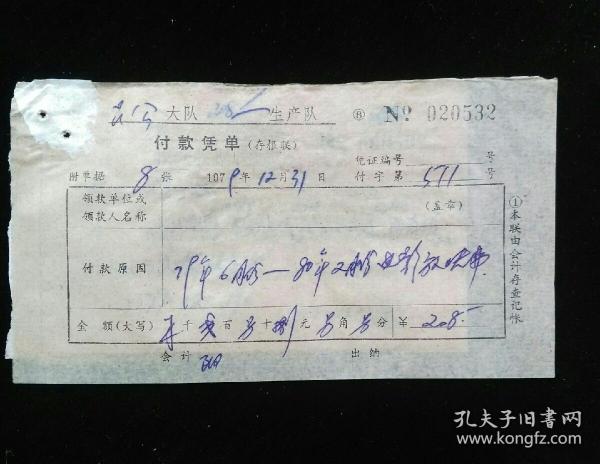 大队 生产队 Ⓑ No 020532
付款凭单(存根联)
凭证编号 号
附单据 8 张 1979年12月31日 付字第 571 号
领款单位或
领款人名称
(盖章)
付款原因 79年6月份—80年2月份电影放映费
金额(大写) 千 贰百 另十 捌元 另角 另分 ¥ 208.
会计 出纳
①本联由会计存查记帐
孔夫子旧书网
www.kongfz.com